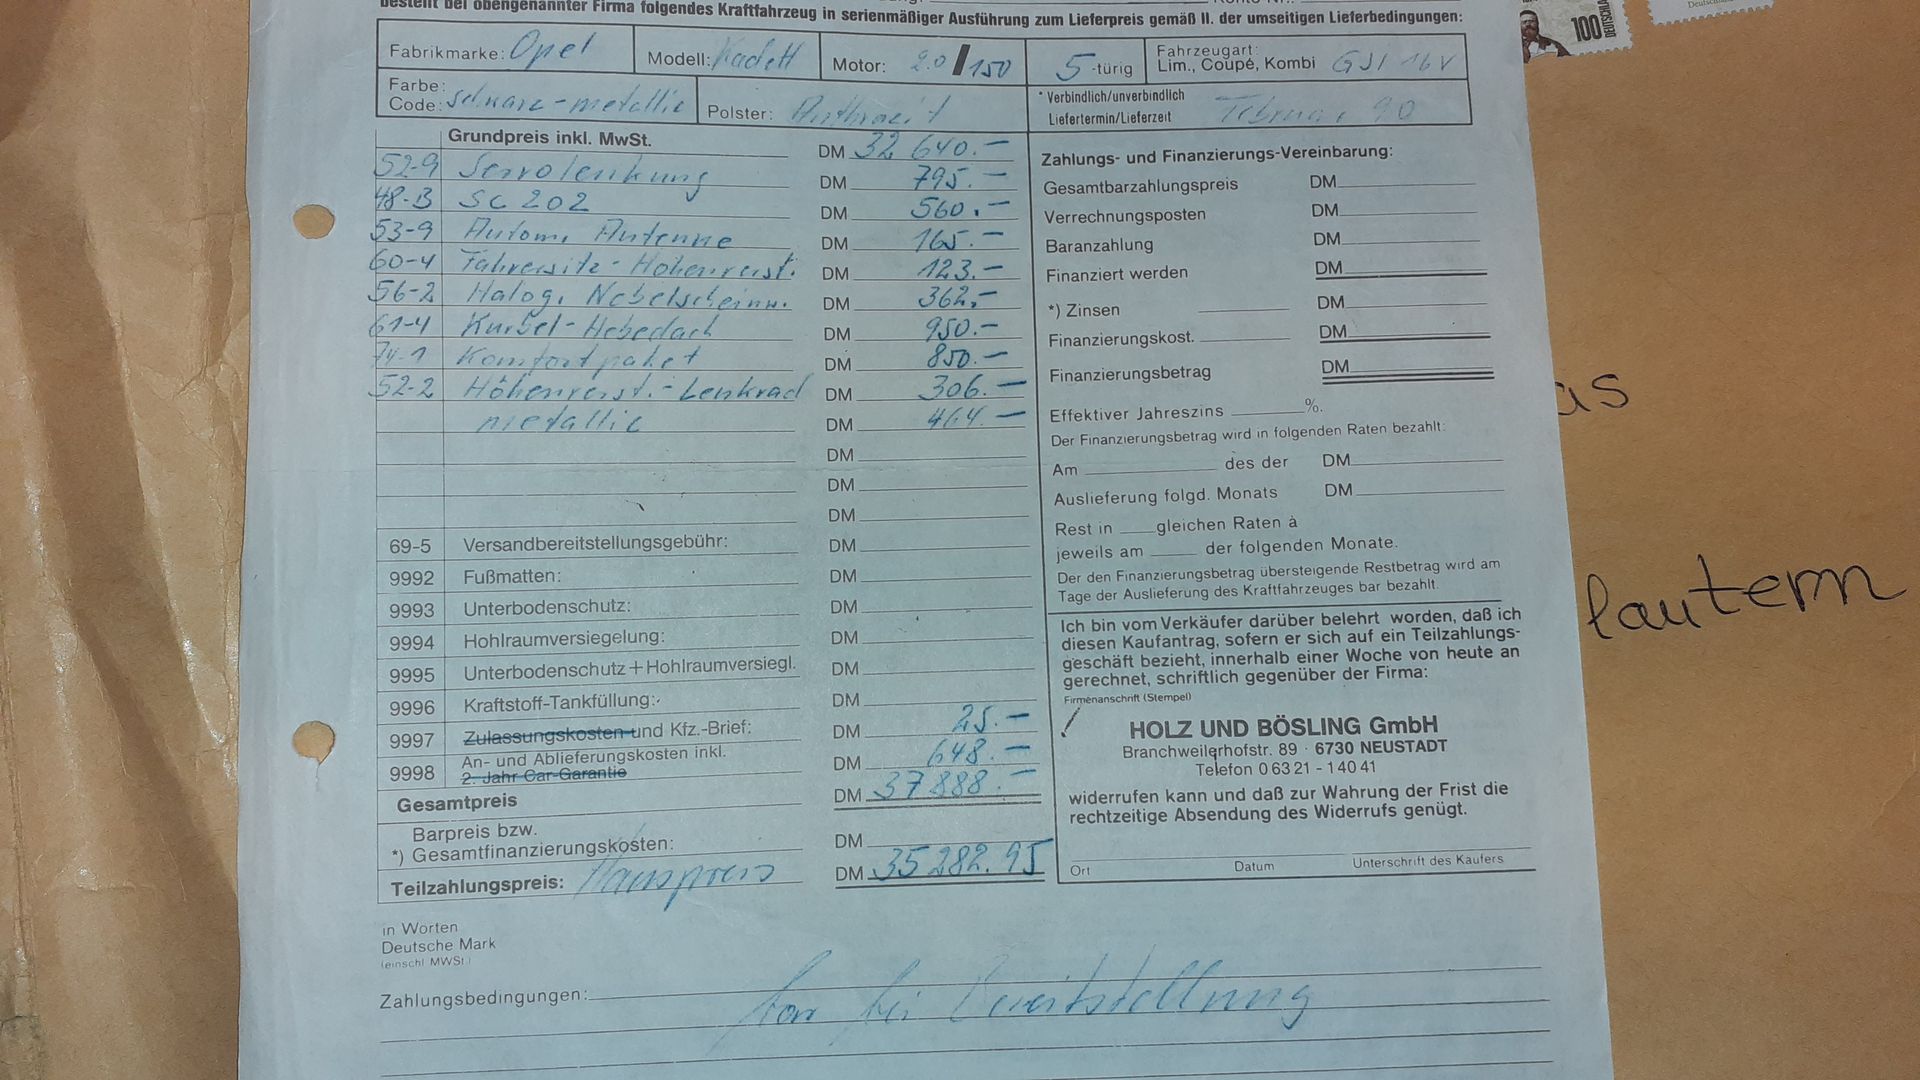 bestellt bei obengenannter Firma folgendes Kraftfahrzeug in serienmäßiger Ausführung zum Lieferpreis gemäß II. der umseitigen Lieferbedingungen:
Fabrikmarke: Opel Modell: Kadett Motor: 2.0/150 5-türig Fahrzeugart: Lim., Coupé, Kombi GSI 16V
Farbe: Code: schwarz-metallic Polster: Anthrazit * Verbindlich/unverbindlich Liefertermin/Lieferzeit Februar 90
Grundpreis inkl. MwSt. DM 32 640.-
52-9 Servolenkung DM 795.-
48-B SC 202 DM 560.-
53-9 Autom. Antenne DM 165.-
60-4 Fahrersitz-Höhenverst. DM 123.-
56-2 Halog. Nebelscheinw. DM 362,-
61-4 Kurbel-Hebedach DM 950.-
74-1 Komfortpaket DM 850.-
52-2 Höhenverst.-Lenkrad DM 306.-
metallic DM 464.-
DM
DM
DM
69-5 Versandbereitstellungsgebühr: DM
9992 Fußmatten: DM
9993 Unterbodenschutz: DM
9994 Hohlraumversiegelung: DM
9995 Unterbodenschutz+Hohlraumversiegl. DM
9996 Kraftstoff-Tankfüllung: DM
9997 Zulassungskosten und Kfz.-Brief: DM 25.-
9998 An- und Ablieferungskosten inkl. 2. Jahr Car-Garantie DM 648.-
Gesamtpreis DM 37 888.-
Barpreis bzw.
*) Gesamtfinanzierungskosten: DM
Teilzahlungspreis: Hauspreis DM 35 282.95
in Worten
Deutsche Mark
(einschl MWSt.)
Zahlungsbedingungen: bar bei Bereitstellung
Zahlungs- und Finanzierungs-Vereinbarung:
Gesamtbarzahlungspreis DM
Verrechnungsposten DM
Baranzahlung DM
Finanziert werden DM
*) Zinsen DM
Finanzierungskost. DM
Finanzierungsbetrag DM
Effektiver Jahreszins %.
Der Finanzierungsbetrag wird in folgenden Raten bezahlt:
Am des der DM
Auslieferung folgd. Monats DM
Rest in gleichen Raten à
jeweils am der folgenden Monate.
Der den Finanzierungsbetrag übersteigende Restbetrag wird am
Tage der Auslieferung des Kraftfahrzeuges bar bezahlt.
Ich bin vom Verkäufer darüber belehrt worden, daß ich
diesen Kaufantrag, sofern er sich auf ein Teilzahlungs-
geschäft bezieht, innerhalb einer Woche von heute an
gerechnet, schriftlich gegenüber der Firma:
Firmenanschrift (Stempel)
HOLZ UND BÖSLING GmbH
Branchweilerhofstr. 89 · 6730 NEUSTADT
Telefon 0 63 21 - 1 40 41
widerrufen kann und daß zur Wahrung der Frist die
rechtzeitige Absendung des Widerrufs genügt.
Ort Datum Unterschrift des Käufers
100
as
lautern